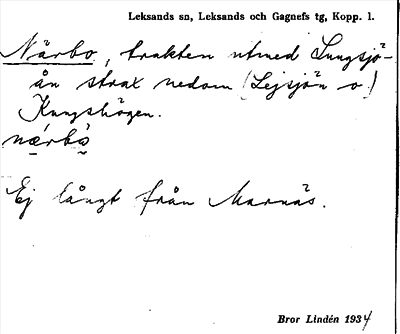 Leksands sn, Leksands och Gagnefs tg, Kopp. l.
Närbo, trakten utmed Lungsjö-
ån strax nedom (Lejsjön o.)
Kungshögen.
nærbò
Ej långt från Marnäs.
Bror Lindén 1934